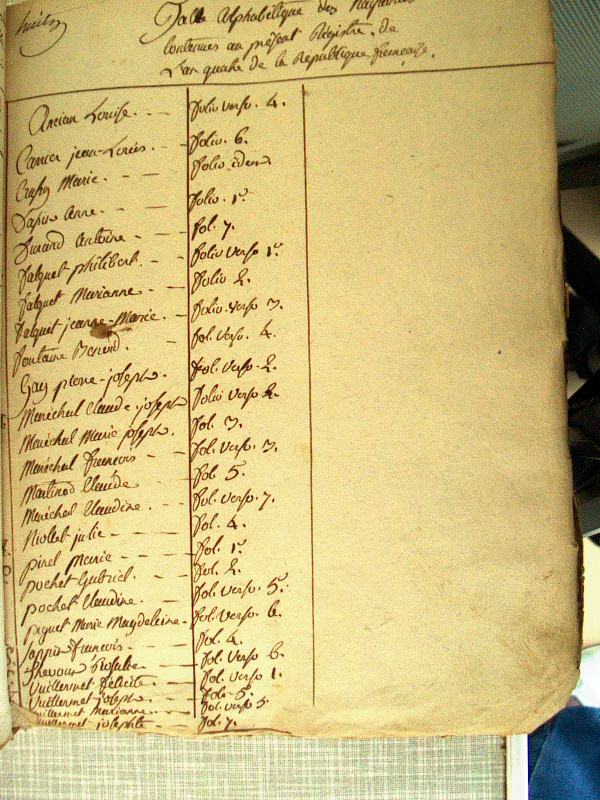 huit
Table Alphabétique des Naissances
Contenues au présent Régistre, de
L'an quatre de la République françoise.
Ancian Louise. folio verso. 4.
Carrier jean-Louis. folio. 6.
Marie. folio idem
Anne. folio. 1er
Durand Antoine fol. 7.
falquet philibert. folio verso 1er
falquet Marianne folio 2.
falquet jeanne-Marie. folio verso 3.
fontaine Benoit. fol. verso. 4.
Gay pierre-joseph. fol. verso. 2.
Maréchal Claude-joseph folio verso 2.
Maréchal Marie joseph. fol. 3.
Maréchal françois fol. verso. 3.
Martinod Claude fol 5.
Maréchal Claudine. fol. verso. 7.
Niollet julie fol. 4.
pinel Marie fol. 1er
pochet Gabriel. fol. 2.
pochet Claudine. fol. verso. 5.
piquet Marie Magdeleine. fol. verso. 6.
françois. fol. 4.
Thevoux fol. verso 6.
Vuillermet félicité fol. verso 1.
Vuillermet joseph folio 5.
Vuillermet Marianne fol. verso 5
Vuillermet josephte fol. 7.